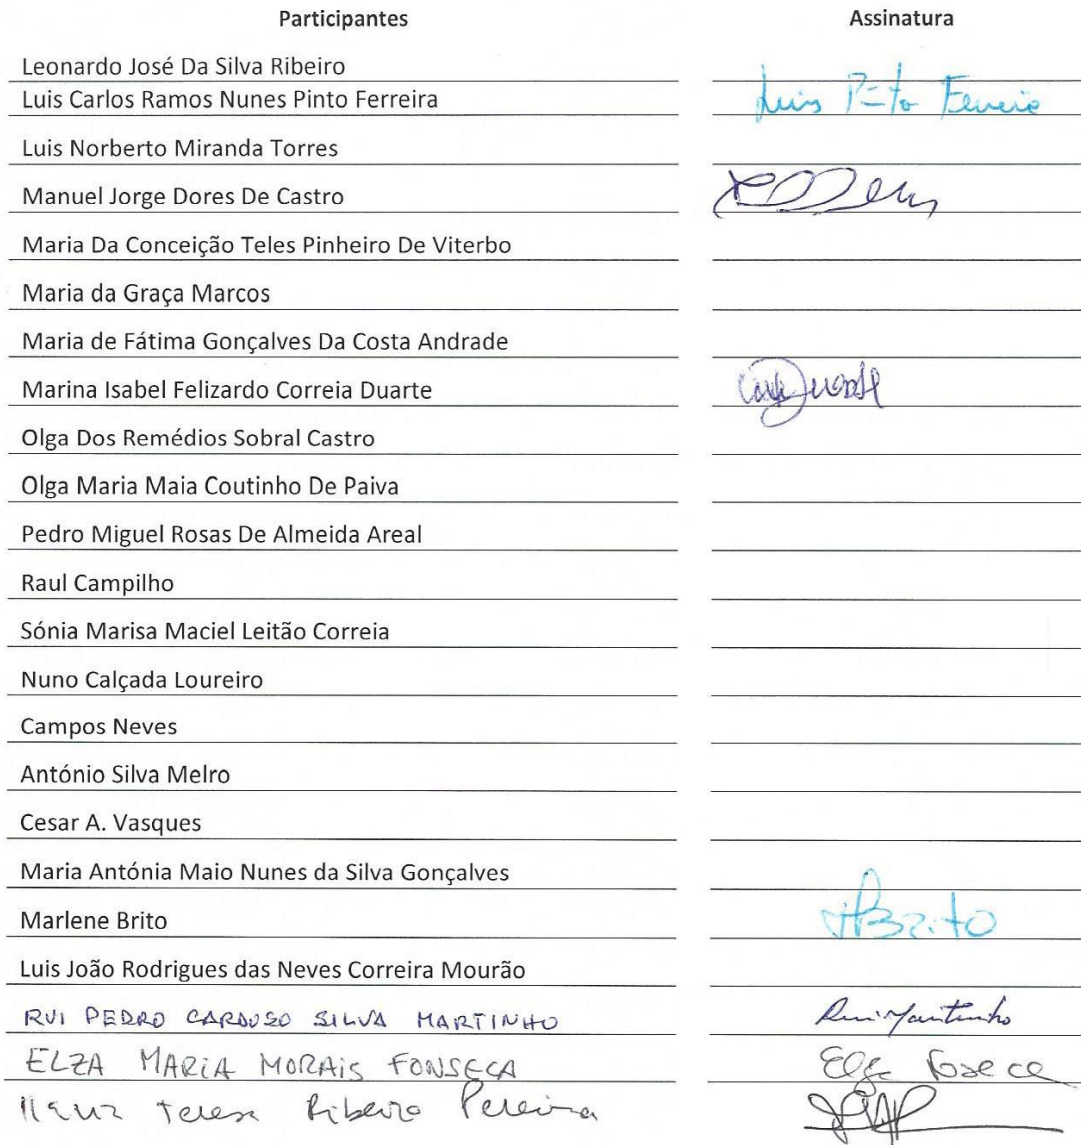 Participantes Assinatura
Leonardo José Da Silva Ribeiro
Luis Carlos Ramos Nunes Pinto Ferreira Luis Pinto Ferreira
Luis Norberto Miranda Torres
Manuel Jorge Dores De Castro
Maria Da Conceição Teles Pinheiro De Viterbo
Maria da Graça Marcos
Maria de Fátima Gonçalves Da Costa Andrade
Marina Isabel Felizardo Correia Duarte
Olga Dos Remédios Sobral Castro
Olga Maria Maia Coutinho De Paiva
Pedro Miguel Rosas De Almeida Areal
Raul Campilho
Sónia Marisa Maciel Leitão Correia
Nuno Calçada Loureiro
Campos Neves
António Silva Melro
Cesar A. Vasques
Maria Antónia Maio Nunes da Silva Gonçalves
Marlene Brito MBrito
Luis João Rodrigues das Neves Correira Mourão
RUI PEDRO CARDOSO SILVA MARTINHO Rui Martinho
ELZA MARIA MORAIS FONSECA Elza Fonseca
Maria Teresa Ribeiro Pereira